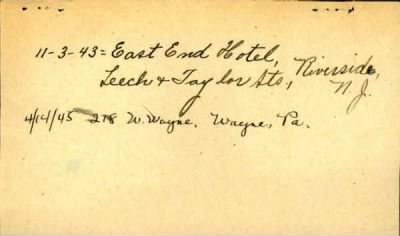 11-3-43 = East End Hotel,
Leech & Taylor Sts., Riverside,
N. J.
4/14/45 218 W. Wayne, Wayne, Pa.